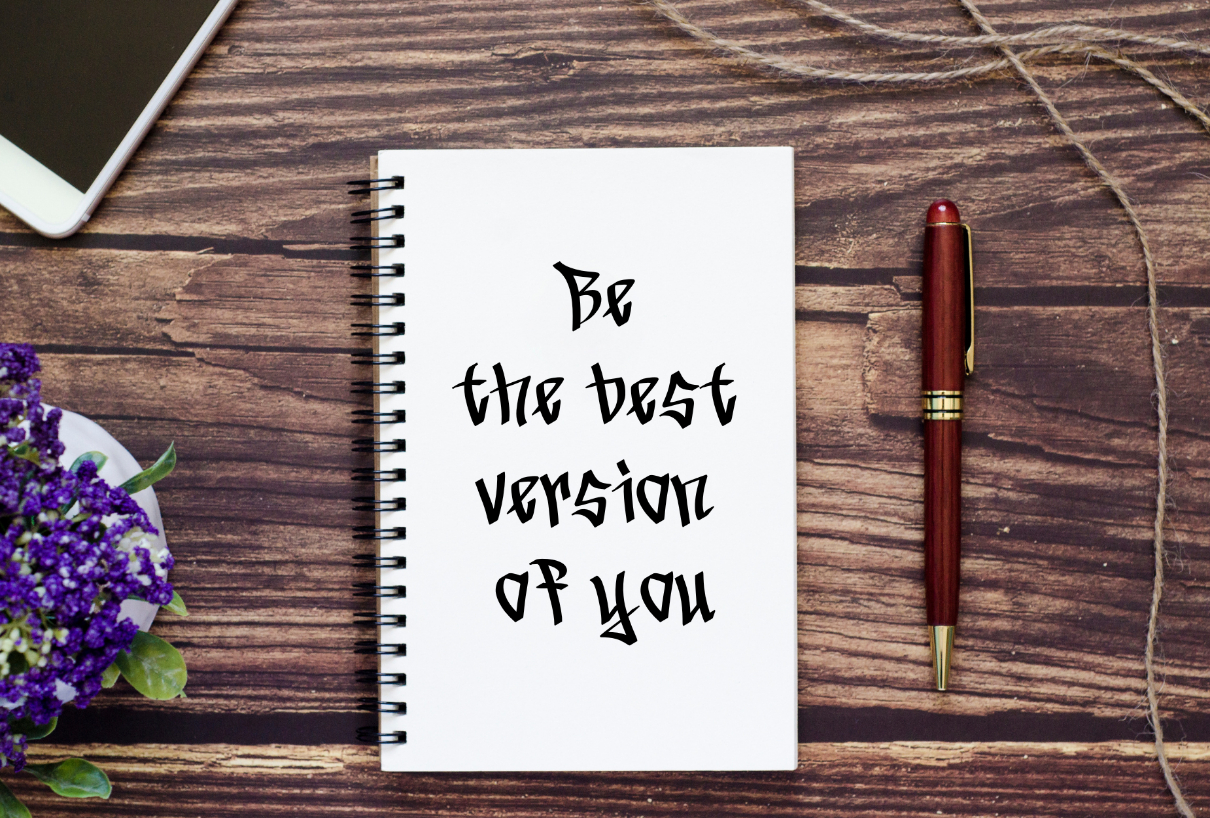 Be
the best
version
of you